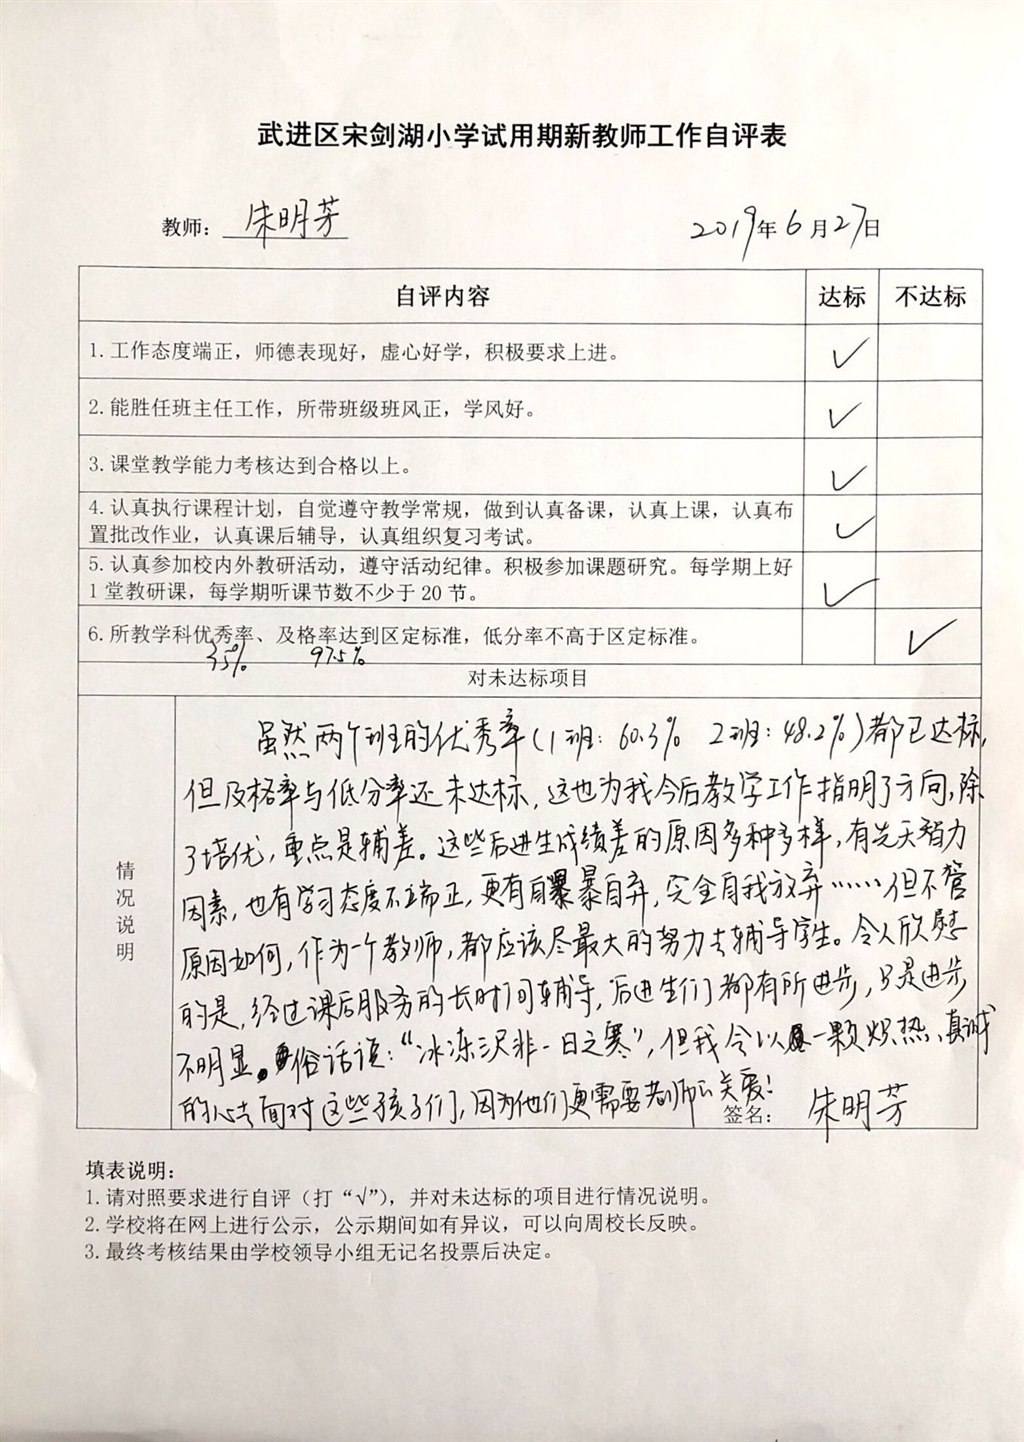 武进区宋剑湖小学试用期新教师工作自评表
教师： 朱明芳 2019年6月27日
自评内容 达标 不达标
1.工作态度端正，师德表现好，虚心好学，积极要求上进。 ✓
2.能胜任班主任工作，所带班级班风正，学风好。 ✓
3.课堂教学能力考核达到合格以上。 ✓
4.认真执行课程计划，自觉遵守教学常规，做到认真备课，认真上课，认真布
置批改作业，认真课后辅导，认真组织复习考试。 ✓
5.认真参加校内外教研活动，遵守活动纪律。积极参加课题研究。每学期上好
1堂教研课，每学期听课节数不少于20节。 ✓
6.所教学科优秀率、及格率达到区定标准，低分率不高于区定标准。 ✓
35% 97.5%
对未达标项目
情况说明
虽然两个班的优秀率(1班：60.3% 2班：48.2%)都已达标，
但及格率与低分率还未达标，这也为我今后教学工作指明了方向，除
了培优，重点是辅差。这些后进生成绩差的原因多种多样，有先天智力
因素，也有学习态度不端正，更有自暴自弃，完全自我放弃……但不管
原因如何，作为一个教师，都应该尽最大的努力去辅导学生。令人欣慰
的是，经过课后服务的长时间辅导，后进生们都有所进步，只是进步
不明显。俗话说：“冰冻三尺非一日之寒”，但我会以一颗炽热、真诚
的心去面对这些孩子们，因为他们更需要老师的关爱！
签名： 朱明芳
填表说明：
1.请对照要求进行自评（打“√”），并对未达标的项目进行情况说明。
2.学校将在网上进行公示，公示期间如有异议，可以向周校长反映。
3.最终考核结果由学校领导小组无记名投票后决定。